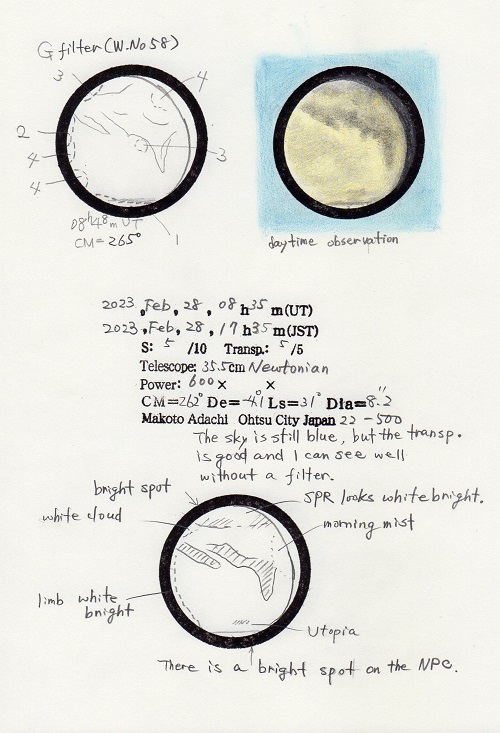 G filter (W.No58)
3
4
2
4
4
3
08h48m UT
CM=265°
1
daytime observation
2023, Feb, 28, 08 h 35 m (UT)
2023, Feb, 28, 17 h 35 m (JST)
S: 5 /10 Transp.: 5 /5
Telescope: 35.5cm Newtonian
Power: 600× ×
CM=262° De=-4.1° Ls=31° Dia=8.2"
Makoto Adachi Ohtsu City Japan 22-500
The sky is still blue, but the transp.
is good and I can see well
without a filter.
bright spot
SPR looks white bright.
white cloud
morning mist
limb white
bright
Utopia
There is a bright spot on the NPC.